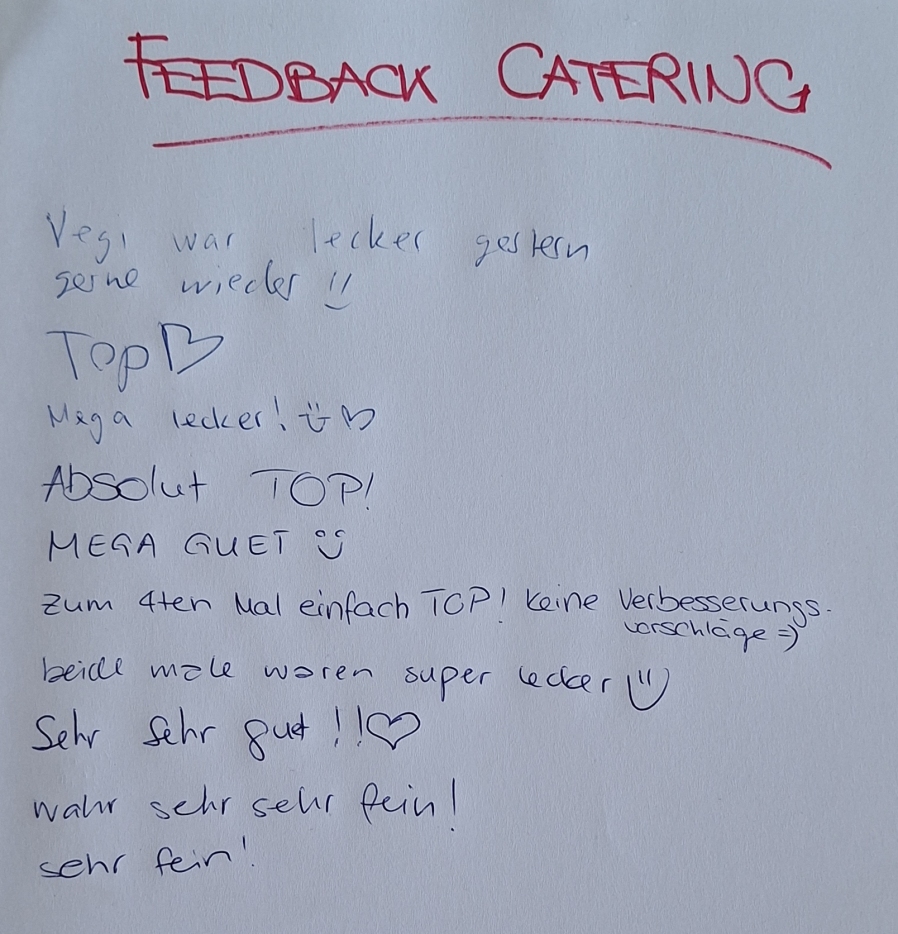 FEEDBACK CATERING
Vegi war lecker gestern
gerne wieder !!
Top
Mega lecker!
Absolut TOP!
MEGA GUET
Zum 4ten Mal einfach TOP! Keine Verbesserungs-
vorschläge =)
beide male waren super lecker
Sehr Sehr gut !!
wahr sehr sehr fein!
sehr fein!